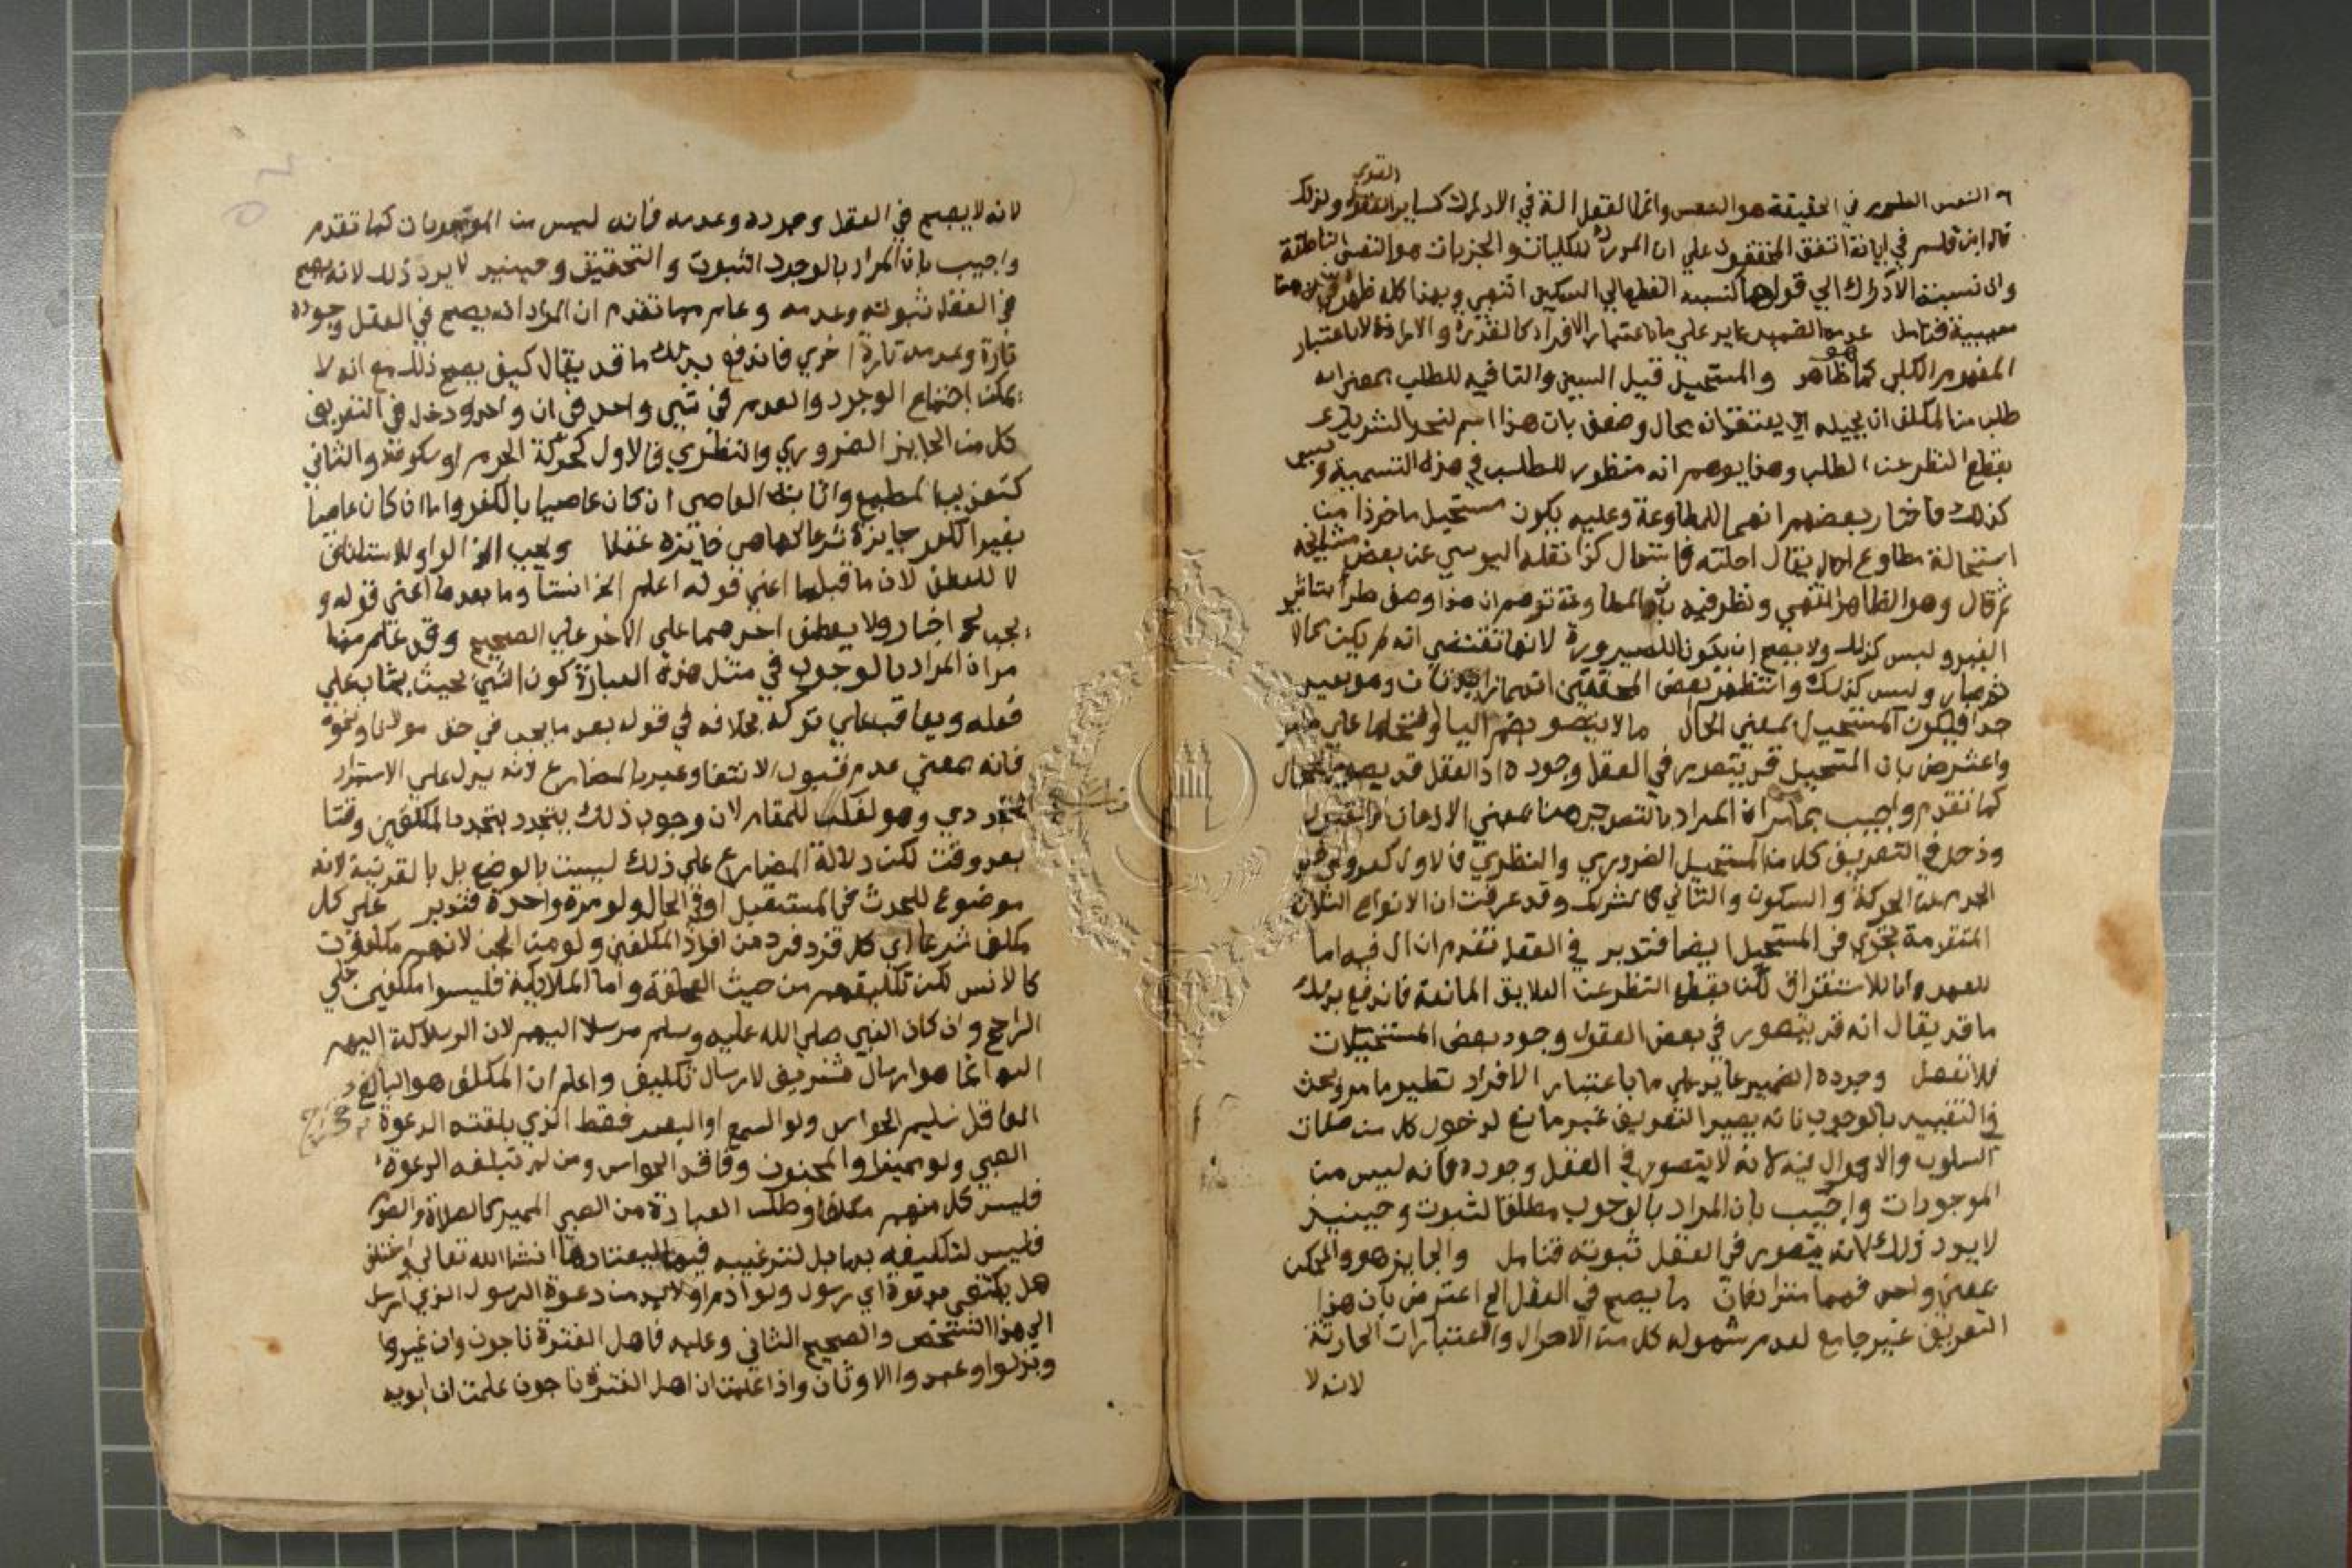 النفس في الحقيقة هو النفس وانما العقل الة في الادراك كساير القوي ولذلك
قال ابن قاسم في اياته اتفق المحققون علي ان المدرك للكليات والجزيات هو النفس الناطقة
وان نسبة الادراك الي قواها كنسبة القطع الي السكين انتهي وبهذا كله ظهر ان هنا
سببية فتامل عدمه الضمير عايد علي ما باعتبار الافراد كالقدرة والارادة لا باعتبار
المفهوم الكلي كما هو ظاهر والمستحيل قيل السين والتا فيه للطلب بمعني انه
طلب من المكلف ان يحيله اي يعتقد انه محال وضعف بان هذا اسم لنحو الشريك
بقطع النظر عن الطلب وهذا يوهم انه منظور للطلب في هذه التسمية وليس
كذلك فاختار بعضهم انهما للمطاوعة وعليه يكون مستحيل ماخوذا من
استحالة مطاوع احال يقال احلته فاستحال كذا نقله اليوسي عن بعض مشايخه
ثم قال وهو الظاهر انتهي ونظر فيه بان المطاوعة توهم ان هذا وصف طرا بتاثير
الغير وليس كذلك ولا يصح ان يكونا للصيرورة لانها تقتضي انه لم يكن محالا
ثم صار وليس كذلك واستظهر بعض المحققين انهما زايدتان وهو بعيد
جدا فيكون المستحيل بمعني المحال ما لا يتصور بضم اليا او فتحها علي ما مر
واعترض بان المستحيل قد يتصور في العقل وجوده اذ العقل قد يصور المحال
كما تقدم واجيب بما مر ان المراد بالتصور هنا بمعني الاذعان والقبول
ودخل في التعريف كل من المستحيل الضروري والنظري فالاول كعرو
الجرم عن الحركة والسكون والثاني كالشريك وقد عرفت ان الانواع الثلاث
المتقدمة تجري في المستحيل ايضا فتدبر في العقل تقدم ان ال فيه اما
للعهد واما للاستغراق لكن بقطع النظر عن العلايق المانعة فاندفع بذلك
ما قد يقال انه قد يتصور في بعض العقول وجود بعض المستحيلات
فلا تغفل وجوده الضمير عايد علي ما باعتبار الافراد نظير ما مر وبحث
في التقييد بالوجود بانه يصير التعريف غير مانع لدخول كل من صفات
السلوب والاحوال فيه لانه لا يتصور في العقل وجوده فانه ليس من
الموجودات واجيب بان المراد بالوجود مطلق الثبوت وحينيذ
لا يرد ذلك لانه يتصور في العقل ثبوته فتامل والجايز هو والممكن
بمعني واحد فهما مترادفان ما يصح في العقل الخ اعترض بان هذا
التعريف غير جامع لعدم شموله كل من الاحوال والاعتبارات الحادثة
لانه لا
لانه لا يصح في العقل وجوده وعدمه فانه ليس من الموجودات كما تقدم
واجيب بان المراد بالوجود الثبوت والتحقيق وحينيذ لا يرد ذلك لانه يصح
في العقل ثبوته وعدمه وعلم مما تقدم ان المراد انه يصح في العقل وجوده
تارة وعدمه تارة اخري فاندفع بذلك ما قد يقال كيف يصح ذلك مع انه لا
يمكن اجتماع الوجود والعدم في شي واحد في ان واحد ودخل في التعريف
كل من الجايز الضروري والنظري فالاول كحركة الجرم او سكونه والثاني
كتعذيب المطيع واثابة العاصي ان كان عاصيا بالكفر واما ان كان عاصيا
بغير الكفر جايزة شرعا كما هي جايزة عقلا ويجب الخ الواو للاستيناف
لا للعطف لان ما قبلها اعني قوله اعلم الخ انشا وما بعدها اعني قوله و
يجب الخ اخبار ولا يعطف احدهما علي الاخر علي الصحيح وقد علم مما
مر ان المراد بالوجوب في مثل هذه العبارة كون الشي بحيث يثاب علي
فعله ويعاقب علي تركه بخلافه في قوله بعد ما يجب في حق مولانا ونحوه
فانه بمعني عدم قبول الانتفا وعبر بالمضارع لانه يدل علي الاستمرار
التجددي وهو المناسب للمقام لان وجوب ذلك يتجدد بتجدد المكلفين وقتا
بعد وقت لكن دلالة المضارع علي ذلك ليست بالوضع بل بالقرينة لانه
موضوع للحدث في المستقبل او في الحال ولو مرة واحدة فتدبر علي كل
مكلف شرعا اي كل فرد فرد من افراد المكلفين ولو من الجن لانهم مكلفون
كالانس لكن تكليفهم من حيث الخلقة واما الملايكة فليسوا مكلفين علي
الراجح وان كان النبي صلي الله عليه وسلم مرسلا اليهم لان الرسالة اليهم
انما هو ارسال تشريف لا ارسال تكليف واعلم ان المكلف هو البالغ
العاقل سليم الحواس ولو السمع او البصر فقط الذي بلغته الدعوة فخرج
الصبي ولو مميزا والمجنون وفاقد الحواس ومن لم تبلغه الدعوة
فليس كل منهم مكلفا وطلب العبادة من الصبي المميز كالصلاة والصوم
فليس لتكليفه بها بل لترغيبه فيها ليعتادها ان شا الله تعالي واختلف
هل يكتفي بدعوة اي رسول ولو ادم او لا بد من دعوة الرسول الذي ارسل
الي هذا الشخص والصحيح الثاني وعليه فاهل الفترة ناجون وان غيروا
وبدلوا وعبدوا الاوثان واذا علمت ان اهل الفترة ناجون علمت ان ابويه